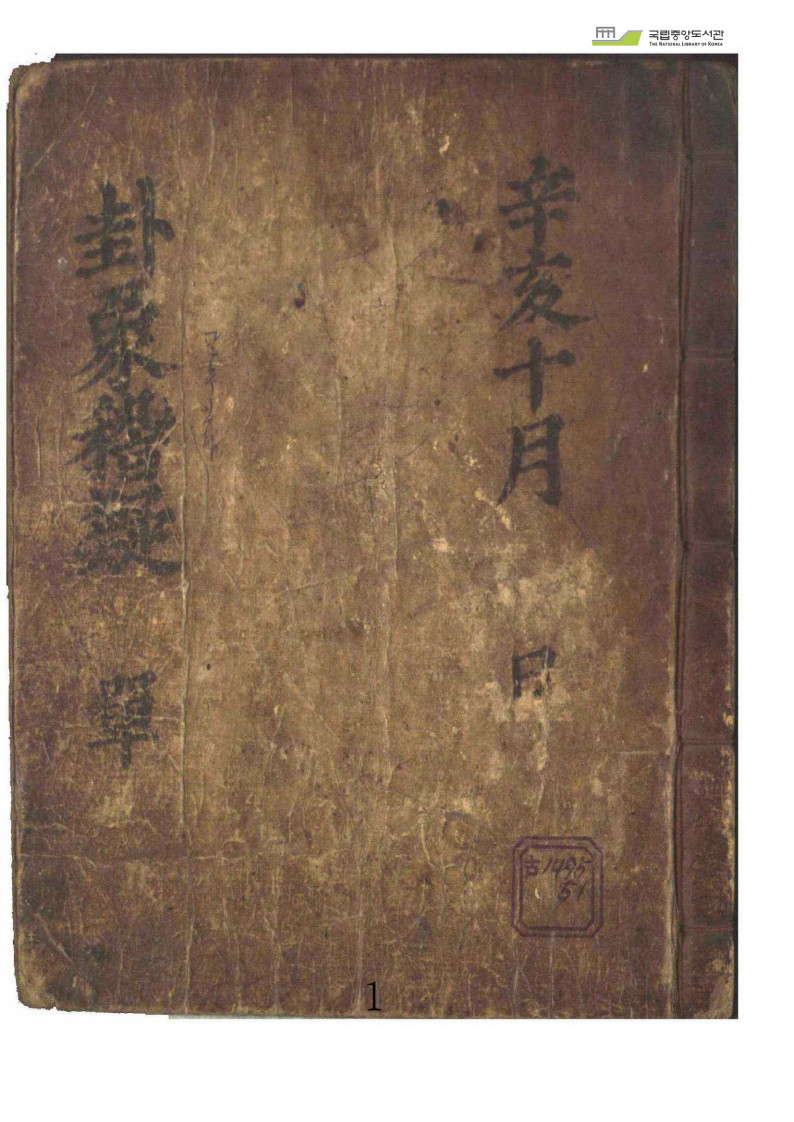 국립중앙도서관
THE NATIONAL LIBRARY OF KOREA
辛亥十月 日
卦聚
單
古1495
51
1